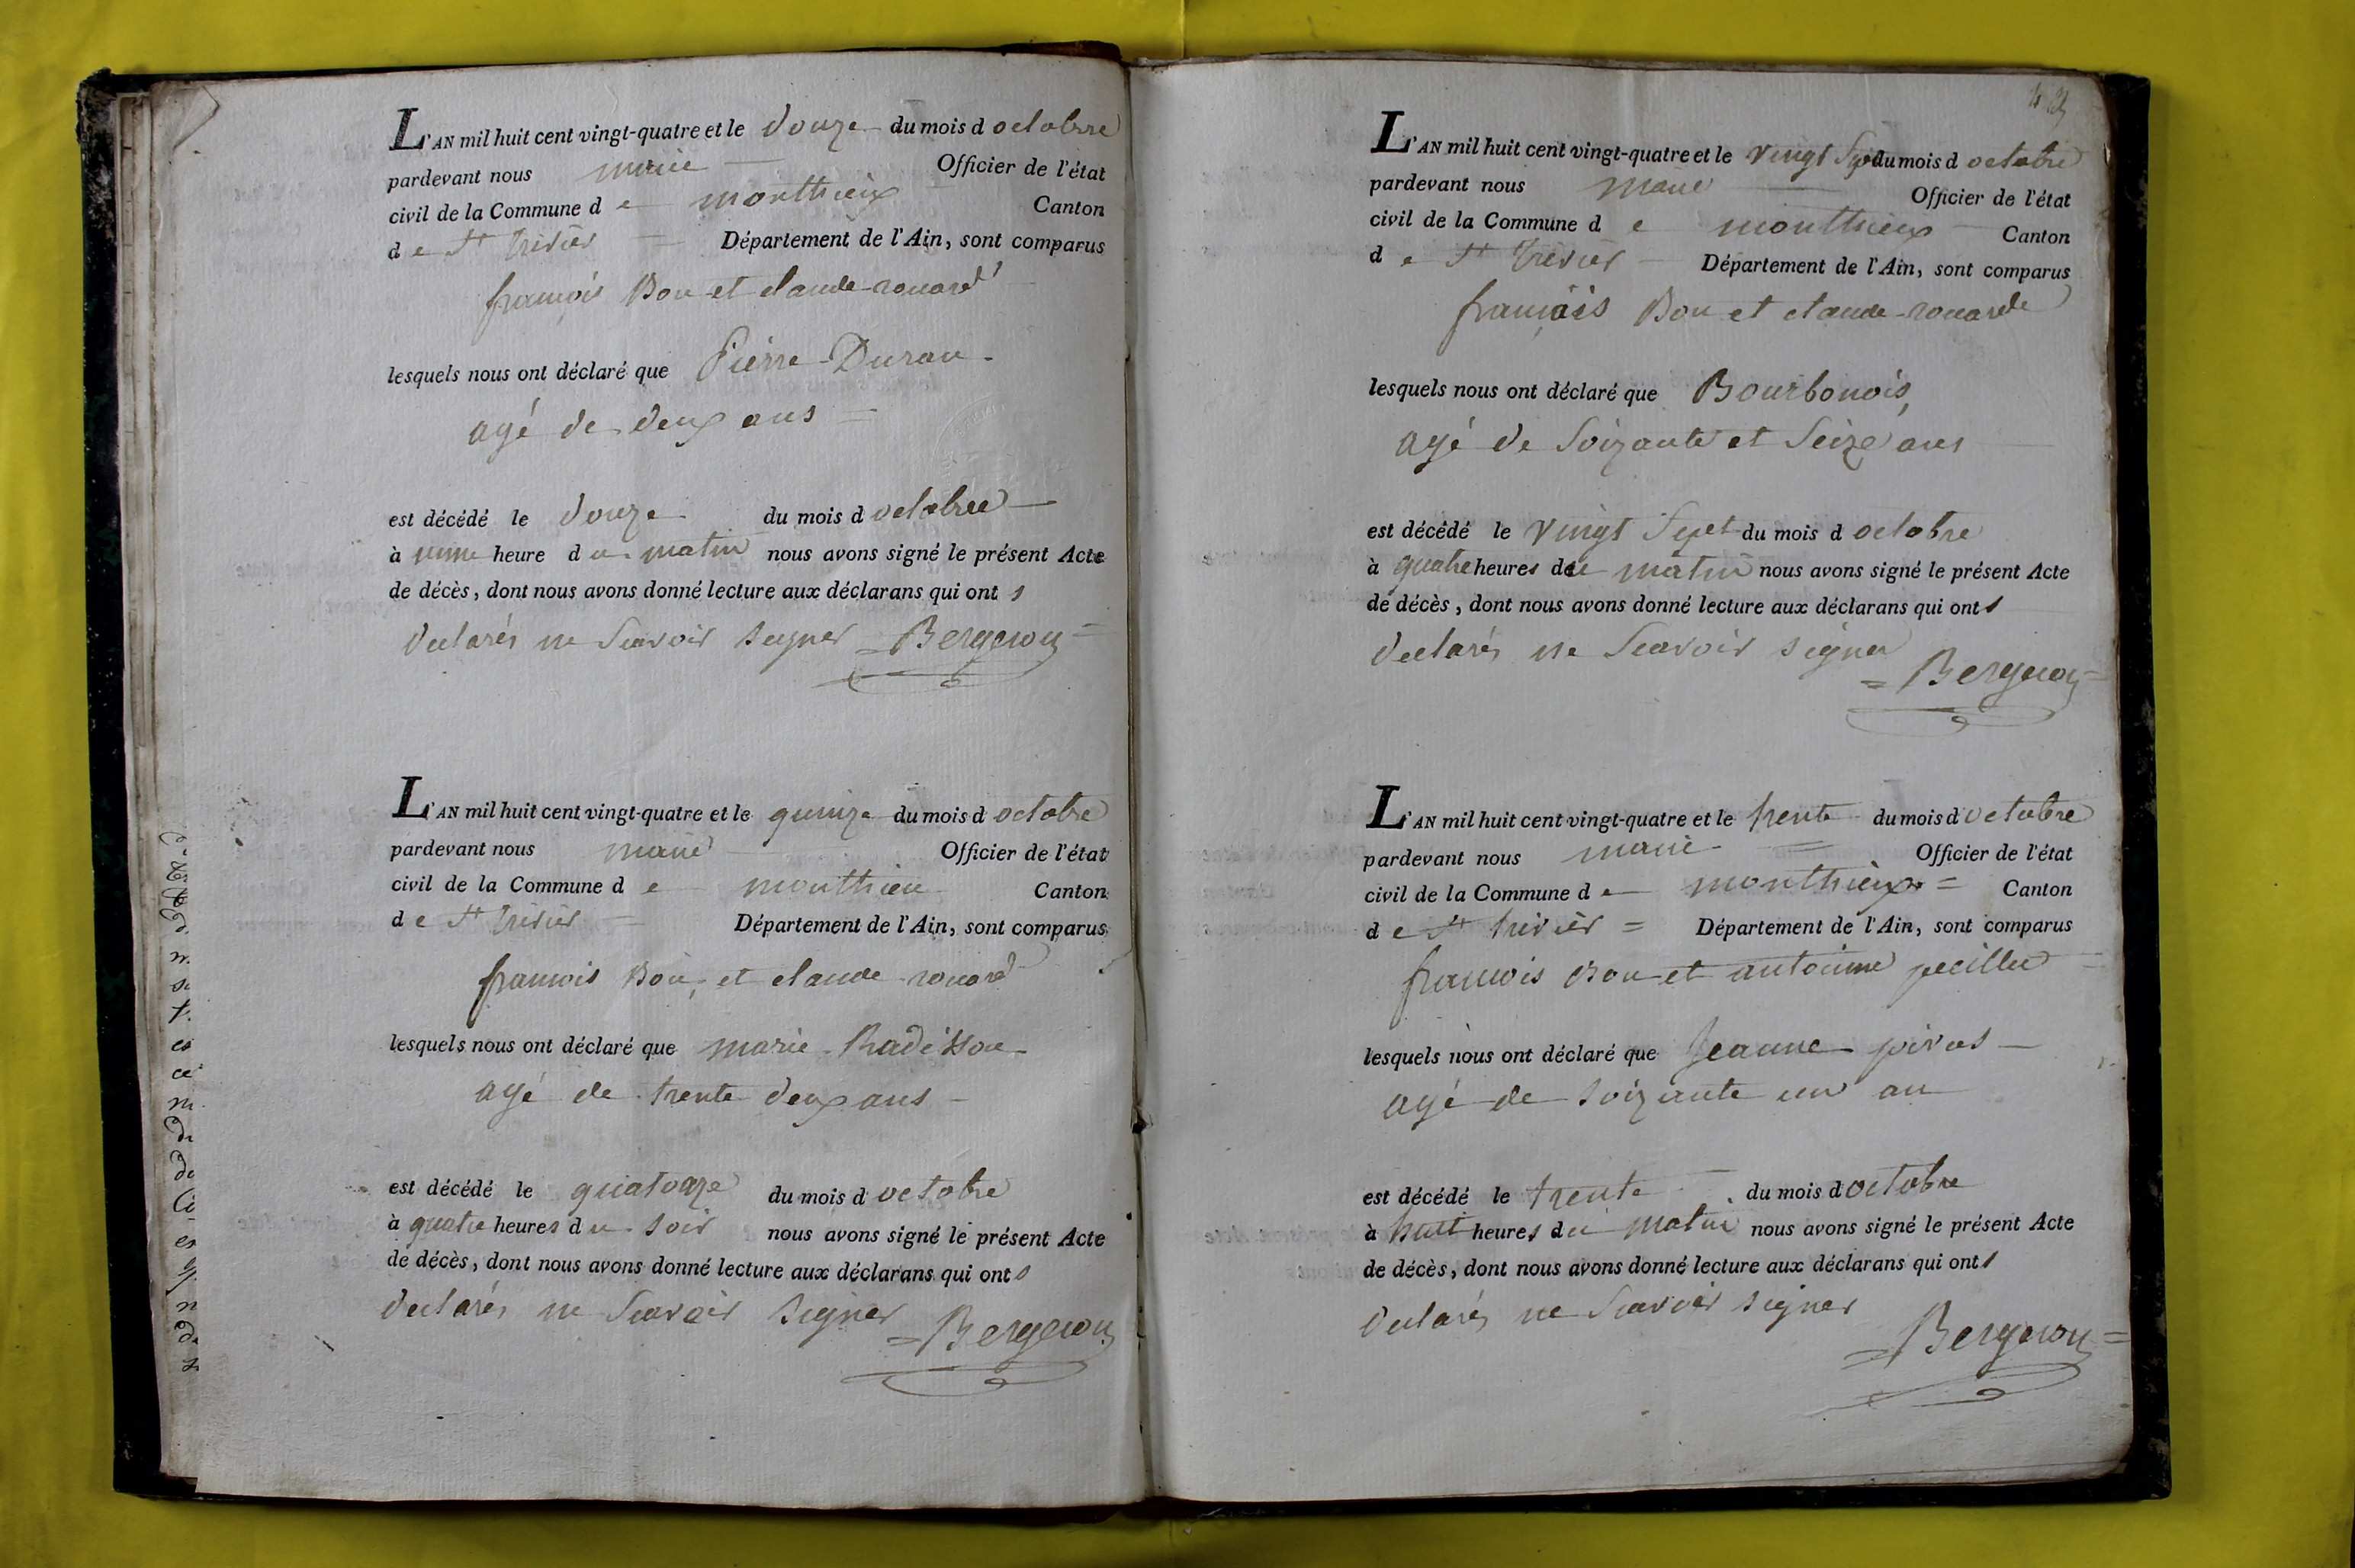 L'AN mil huit cent vingt-quatre et le douze du mois d octobre
pardevant nous maire Officier de l'état
civil de la Commune d e monthieux Canton
d e St trivier Département de l'Ain, sont comparus
francois Bon et claude rouard
lesquels nous ont déclaré que Pierre Duran
agé de deux ans
est décédé le douze du mois d octobre
à heure d u matin nous avons signé le présent Acte
de décès, dont nous avons donné lecture aux déclarans qui ont s
declarés ne Scavoir signer Bergeron
L'AN mil huit cent vingt-quatre et le quinze du mois d octobre
pardevant nous maire Officier de l'état
civil de la Commune d e monthieu Canton
d e St trivier Département de l'Ain, sont comparus
francois Bon et claude rouard
lesquels nous ont déclaré que marie Radisson
agé de trente deux ans
est décédé le quatorze du mois d octobre
à quatre heures d u soir nous avons signé le présent Acte
de décès, dont nous avons donné lecture aux déclarans qui ont s
declarés ne Scavoir signer Bergeron
L'AN mil huit cent vingt-quatre et le vingt Sept du mois d octobre
pardevant nous maire Officier de l'état
civil de la Commune d e monthieux Canton
d e St trivier Département de l'Ain, sont comparus
francois Bon et claude rouarde
lesquels nous ont déclaré que Bourbonois,
agé de Soizante et Seize ans
est décédé le vingt Sept du mois d octobre
à quatre heures de matin nous avons signé le présent Acte
de décès, dont nous avons donné lecture aux déclarans qui ont s
declarés ne Scavoir signer
Bergeron
L'AN mil huit cent vingt-quatre et le trente du mois d octobre
pardevant nous maire Officier de l'état
civil de la Commune d e monthieux Canton
d e St trivier Département de l'Ain, sont comparus
francois Bon et antoinne
lesquels nous ont déclaré que Jeanne
agé de soizante un an
est décédé le trente du mois d octobre
à huit heures du matin nous avons signé le présent Acte
de décès, dont nous avons donné lecture aux déclarans qui ont s
declarés ne Scavoir signer
Bergeron